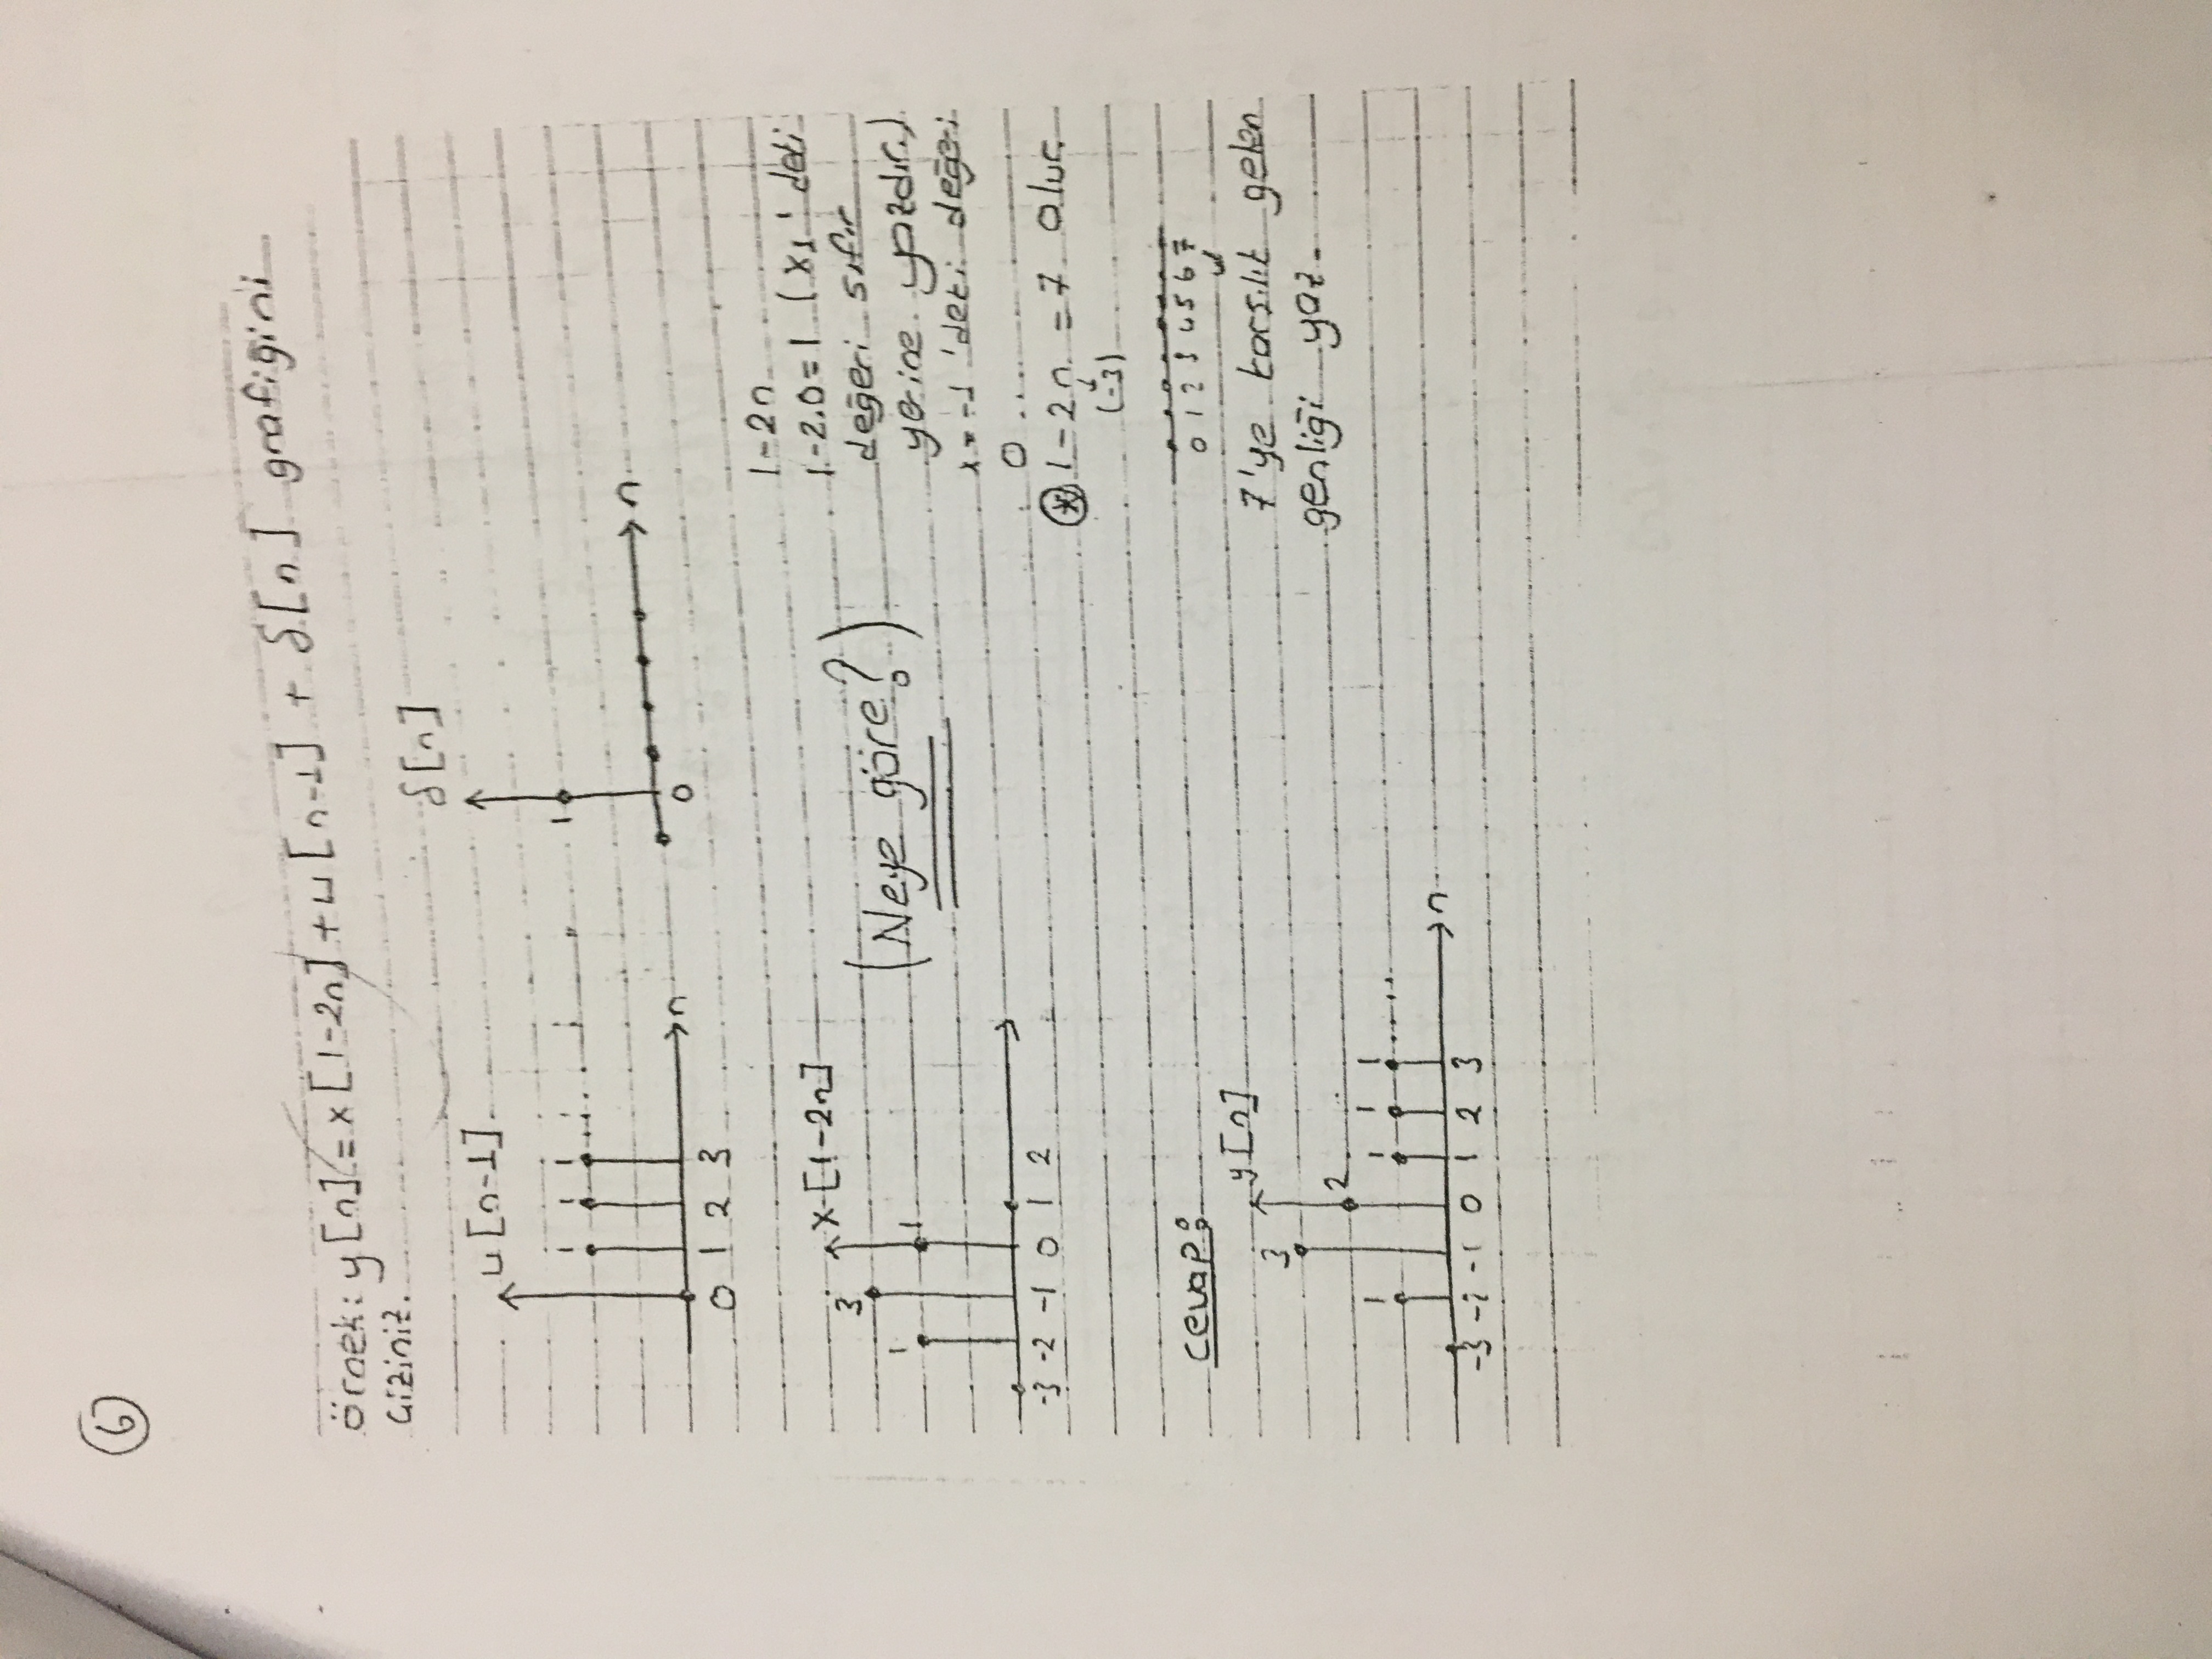 6
örnek: y[n] = x[1-2n] + u[n-1] + δ[n] grafiğini
çiziniz.
u[n-1]
1 1 1
n
0 1 2 3
δ[n]
1
n
0
x[1-2n]
3
1
1
-3 -2 -1 0 1 2
(Neye göre?)
1-2n
1-2.0=1 (x1'deki
değeri sıfır
yerine yazdır.)
x=-1'deki değeri
0 ....
* 1-2n = 7 olur.
(-3)
0 1 2 3 4 5 6 7
7'ye karşılık gelen
genliği yaz.
cevap:
y[n]
3
2
1
1 1 1
n
-3 -2 -1 0 1 2 3